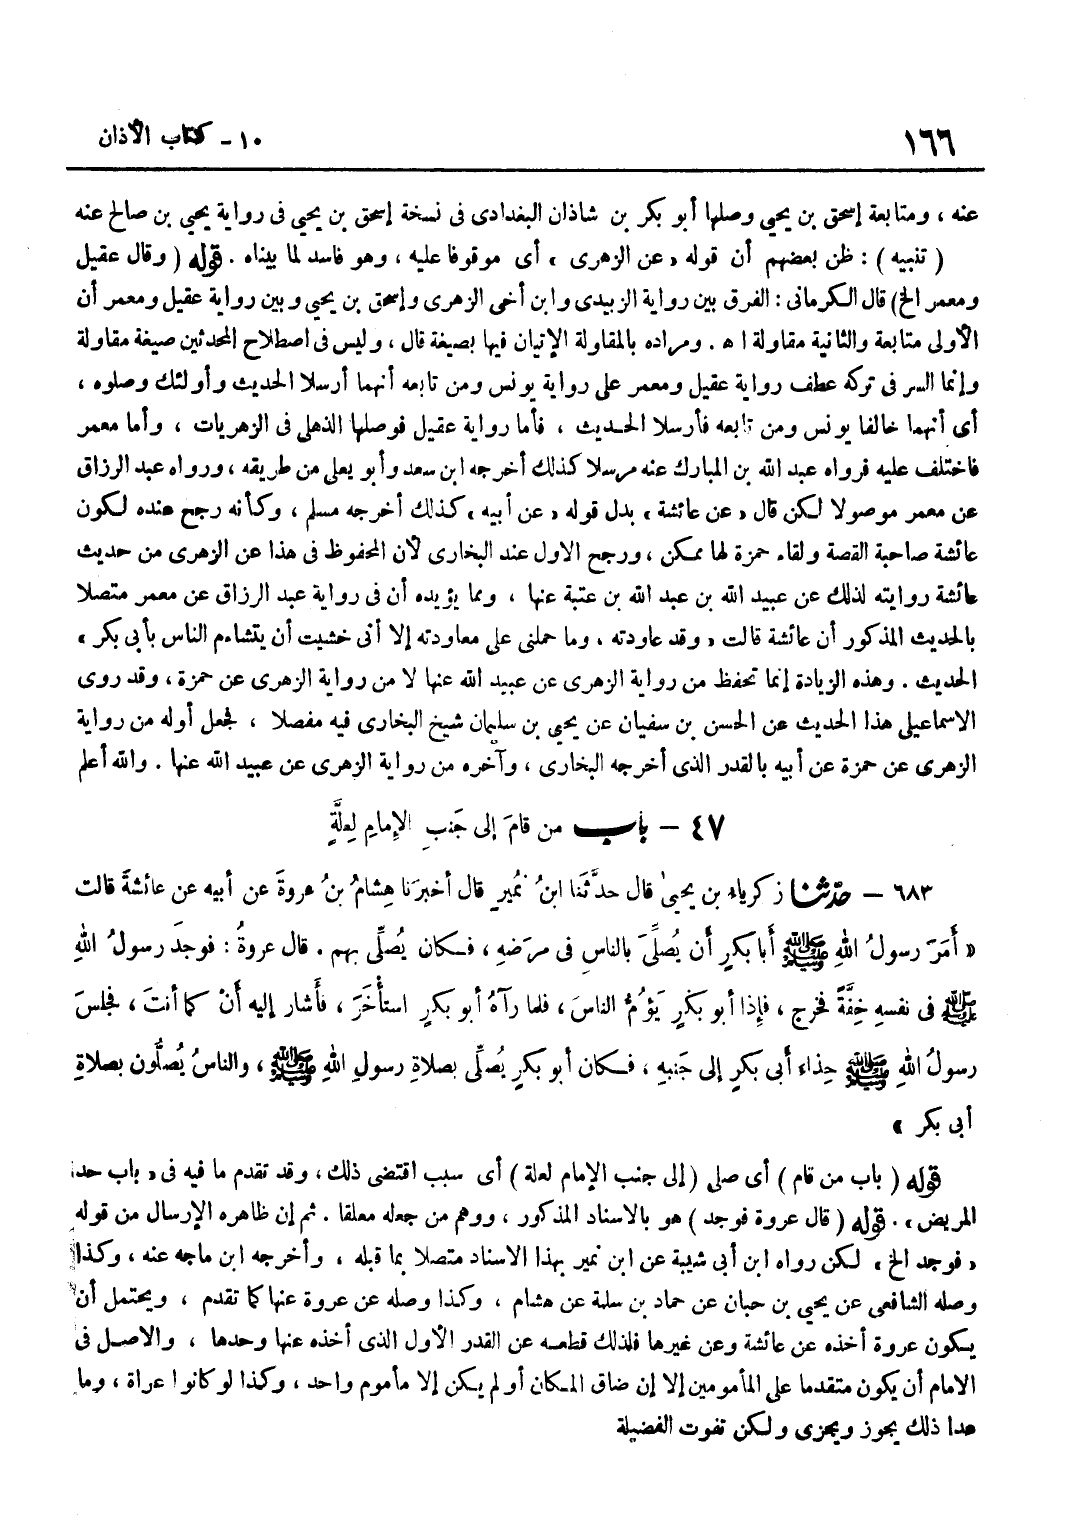 ١٦٦
١٠ - كتاب الأذان
عنه ، ومتابعة إسحق بن يحيى وصلها أبو بكر بن شاذان البغدادى فى نسخة إسحق بن يحيى فى رواية يحيى بن صالح عنه
( تنبيه ) : ظن بعضهم أن قوله « عن الزهرى » أى موقوفا عليه ، وهو فاسد لما بيناه . قوله ( وقال عقيل
ومعمر الخ ) قال الكرمانى : الفرق بين رواية الزبيدى وابن أخى الزهرى وإسحق بن يحيى وبين رواية عقيل ومعمر أن
الأولى متابعة والثانية مقاولة ا هـ . ومراده بالمقاولة الإتيان فيها بصيغة قال ، وليس فى اصطلاح المحدثين صيغة مقاولة
وإنما السر فى تركه عطف رواية عقيل ومعمر على رواية يونس ومن تابعه أنهما أرسلا الحديث وأولئك وصلوه ،
أى أنهما خالفا يونس ومن تابعه فأرسلا الحديث ، فأما رواية عقيل فوصلها الذهلى فى الزهريات ، وأما معمر
فاختلف عليه فرواه عبد الله بن المبارك عنه مرسلا كذلك أخرجه ابن سعد وأبو يعلى من طريقه ، ورواه عبد الرزاق
عن معمر موصولا لكن قال « عن عائشة » بدل قوله « عن أبيه » كذلك أخرجه مسلم ، وكأنه رجح عنده لكون
عائشة صاحبة القصة ولقاء حمزة لها ممكن ، ورجح الاول عند البخارى لأن المحفوظ فى هذا عن الزهرى من حديث
عائشة روايته لذلك عن عبيد الله بن عبد الله بن عتبة عنها ، ومما يؤيده أن فى رواية عبد الرزاق عن معمر متصلا
بالحديث المذكور أن عائشة قالت « وقد عاودته ، وما حملنى على معاودته إلا أنى خشيت أن يتشاءم الناس بأبى بكر »
الحديث . وهذه الزيادة إنما تحفظ من رواية الزهرى عن عبيد الله عنها لا من رواية الزهرى عن حمزة ، وقد روى
الاسماعيلى هذا الحديث عن الحسن بن سفيان عن يحيى بن سليمان شيخ البخارى فيه مفصلا ، فجعل أوله من رواية
الزهرى عن حمزة عن أبيه بالقدر الذى أخرجه البخارى ، وآخره من رواية الزهرى عن عبيد الله عنها . والله أعلم
٤٧ - باب من قامَ إلى جَنبِ الإِمامِ لِعلَّةٍ
٦٨٣ - حدّثنا زكرياء بن يحيىٰ قال حدَّثَنا ابنُ نُميرٍ قال أخبرَنا هِشامُ بنُ عروةَ عن أبيه عن عائشةَ قالت
« أَمَرَ رسولُ اللهِ ﷺ أَبا بكرٍ أَن يُصلِّىَ بالناسِ فى مرَضهِ ، فكان يُصلِّى بهم . قال عروةُ : فوجدَ رسولُ اللهِ
ﷺ فى نفسهِ خِفَّةً فخرج ، فإِذا أبو بكرٍ يَؤمُّ الناسَ ، فلما رآهُ أبو بكرٍ استأْخَرَ ، فأَشار إليه أنْ كما أنتَ ، فجلسَ
رسولُ اللهِ ﷺ حِذاءَ أَبى بكرٍ إلى جَنبهِ ، فكان أبو بكرٍ يُصلِّى بصلاةِ رسولِ اللهِ ﷺ ، والناسُ يُصلُّون بصلاةِ
أبى بكر »
قوله ( باب من قام ) أى صلى ( إلى جنب الإمام لعلة ) أى سبب اقتضى ذلك ، وقد تقدم ما فيه فى « باب حد
المريض » . قوله ( قال عروة فوجد ) هو بالاسناد المذكور ، ووهم من جعله معلقا . ثم إن ظاهره الإرسال من قوله
« فوجد الخ » لكن رواه ابن أبى شيبة عن ابن نمير بهذا الاسناد متصلا بما قبله ، وأخرجه ابن ماجه عنه ، وكذا
وصله الشافعى عن يحيى بن حبان عن حماد بن سلمة عن هشام ، وكذا وصله عن عروة عنها كما تقدم ، ويحتمل أن
يكون عروة أخذه عن عائشة وعن غيرها فلذلك قطعه عن القدر الأول الذى أخذه عنها وحدها ، والاصل فى
الامام أن يكون متقدما على المأمومين إلا إن ضاق المكان أو لم يكن إلا مأموم واحد ، وكذا لو كانوا عراة ، وما
عدا ذلك يجوز ويجزى ولكن تفوت الفضيلة